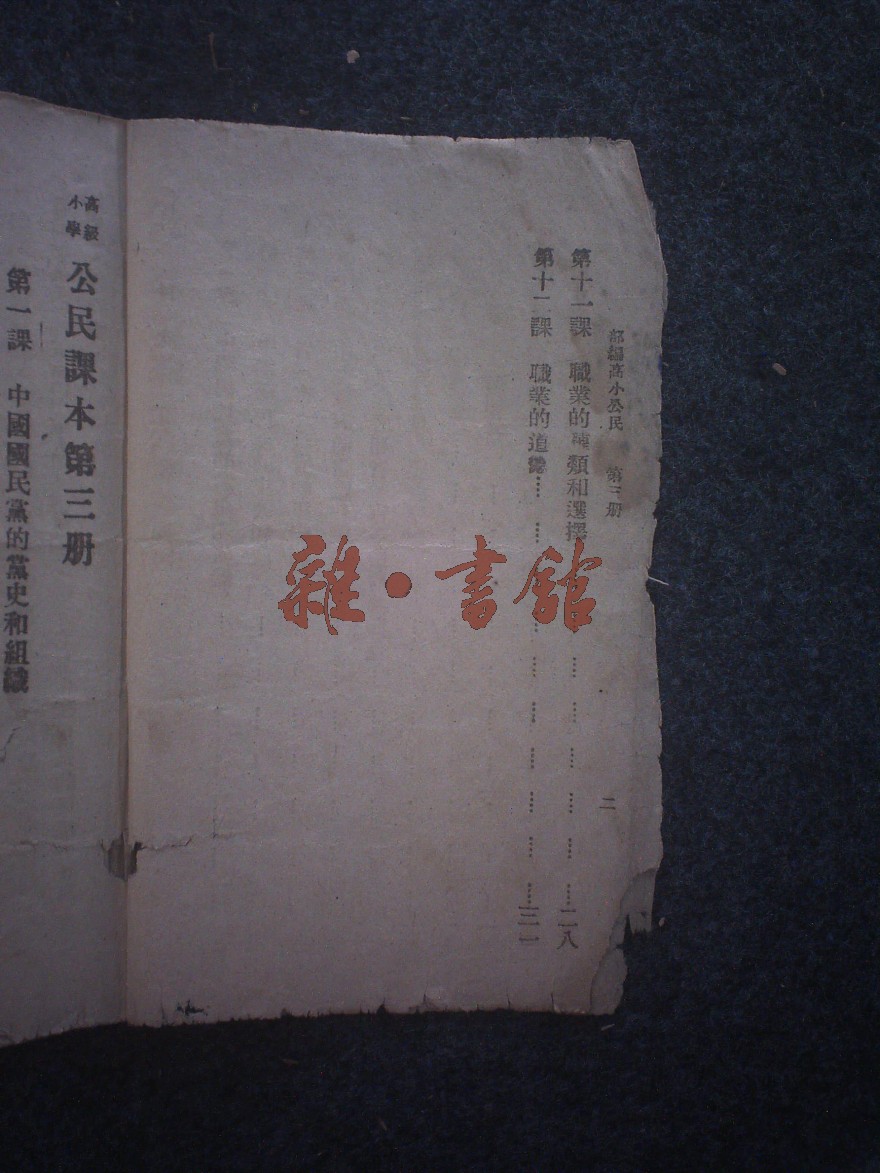 部編高小公民 第三册 二
第十一課 職業的種類和選擇……二八
第十二課 職業的道德……三二
雜·書館
高級小學 公民課本第三册
第一課 中國國民黨的黨史和組織